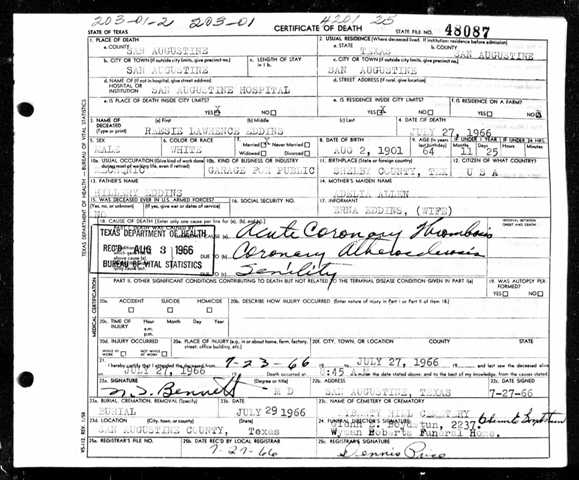 203-01-2 203-01 4201 25
STATE OF TEXAS CERTIFICATE OF DEATH STATE FILE NO. 48087
1. PLACE OF DEATH 2. USUAL RESIDENCE (Where deceased lived. If institution: residence before admission)
a. COUNTY SAN AUGUSTINE a. STATE TEXAS b. COUNTY SAN AUGUSTINE
b. CITY OR TOWN (If outside city limits, give precinct no.) c. LENGTH OF STAY in 1 b. c. CITY OR TOWN (If outside city limits, give precinct no.)
SAN AUGUSTINE SAN AUGUSTINE
d. NAME OF (If not in hospital, give street address) HOSPITAL OR INSTITUTION d. STREET ADDRESS (If rural, give location)
SAN AUGUSTINE HOSPITAL
e. IS PLACE OF DEATH INSIDE CITY LIMITS? YES X NO e. IS RESIDENCE INSIDE CITY LIMITS? YES X NO f. IS RESIDENCE ON A FARM? YES NO X
3. NAME OF DECEASED (Type or print) (a) First (b) Middle (c) Last 4. DATE OF DEATH
REESIE LAWRENCE EDDINS JULY 27, 1966
5. SEX 6. COLOR OR RACE 7. Married Never Married Widowed Divorced 8. DATE OF BIRTH 9. AGE IF UNDER 1 YEAR IF UNDER 24 HRS.
MALE WHITE AUG 2, 1901 64 11 25
10a. USUAL OCCUPATION (Give kind of work done during most of working life, even if retired) 10b. KIND OF BUSINESS OR INDUSTRY 11. BIRTHPLACE (State or foreign country) 12. CITIZEN OF WHAT COUNTRY?
MECHANIC GARAGE FOR PUBLIC SHELBY COUNTY, TEX U S A
13. FATHER'S NAME 14. MOTHER'S MAIDEN NAME
HILLERY EDDINS ADELIA ALLEN
15. WAS DECEASED EVER IN U.S. ARMED FORCES? 16. SOCIAL SECURITY NO. 17. INFORMANT
(Yes, no, or unknown) (If yes, give war or dates of service)
NO ERNA EDDINS, (WIFE)
18. CAUSE OF DEATH (Enter only one cause per line for (a), (b), and (c).) INTERVAL BETWEEN ONSET AND DEATH
PART I. DEATH WAS CAUSED BY:
Acute Coronary Thrombosis
TEXAS DEPARTMENT OF HEALTH
REC'D AUG 3 1966
BUREAU OF VITAL STATISTICS
DUE TO (b) Coronary Atherosclerosis
DUE TO (c) Senility
PART II. OTHER SIGNIFICANT CONDITIONS CONTRIBUTING TO DEATH BUT NOT RELATED TO THE TERMINAL DISEASE CONDITION GIVEN IN PART I(a) 19. WAS AUTOPSY PERFORMED?
YES NO
20a. ACCIDENT SUICIDE HOMICIDE 20b. DESCRIBE HOW INJURY OCCURRED. (Enter nature of injury in Part I or Part II of item 18.)
20c. TIME OF INJURY Hour Month Day Year
a.m.
p.m.
20d. INJURY OCCURRED 20e. PLACE OF INJURY (e.g., in or about home, farm, factory, street, office building, etc.) 20f. CITY, TOWN, OR LOCATION COUNTY STATE
WHILE AT WORK NOT WHILE AT WORK
21. I hereby certify that I attended the deceased from 7-23-66 to JULY 27, 1966 and last saw the deceased alive
JULY 27, 1966 Death occurred at 45 m. on the date stated above; and to the best of my knowledge, from the causes stated.
22a. SIGNATURE (Degree or title) 22b. ADDRESS 22c. DATE SIGNED
Bennett M D SAN AUGUSTINE, TEXAS 7-27-66
23a. BURIAL, CREMATION, REMOVAL (Specify) 23b. DATE 23c. NAME OF CEMETERY OR CREMATORY
BURIAL JULY 29 1966 LIBERTY HILL CEMETERY
23d. LOCATION (City, town, or county) (State) 24. FUNERAL DIRECTOR'S SIGNATURE
SAN AUGUSTINE COUNTY, Texas Boydstun, 2237
Wyman Roberts Funeral Home.
25a. REGISTRAR'S FILE NO. 25b. DATE REC'D BY LOCAL REGISTRAR 25c. REGISTRAR'S SIGNATURE
7-27-66 Dennis Price
TEXAS DEPARTMENT OF HEALTH—BUREAU OF VITAL STATISTICS
MEDICAL CERTIFICATION
VS-112 REV. 1/58